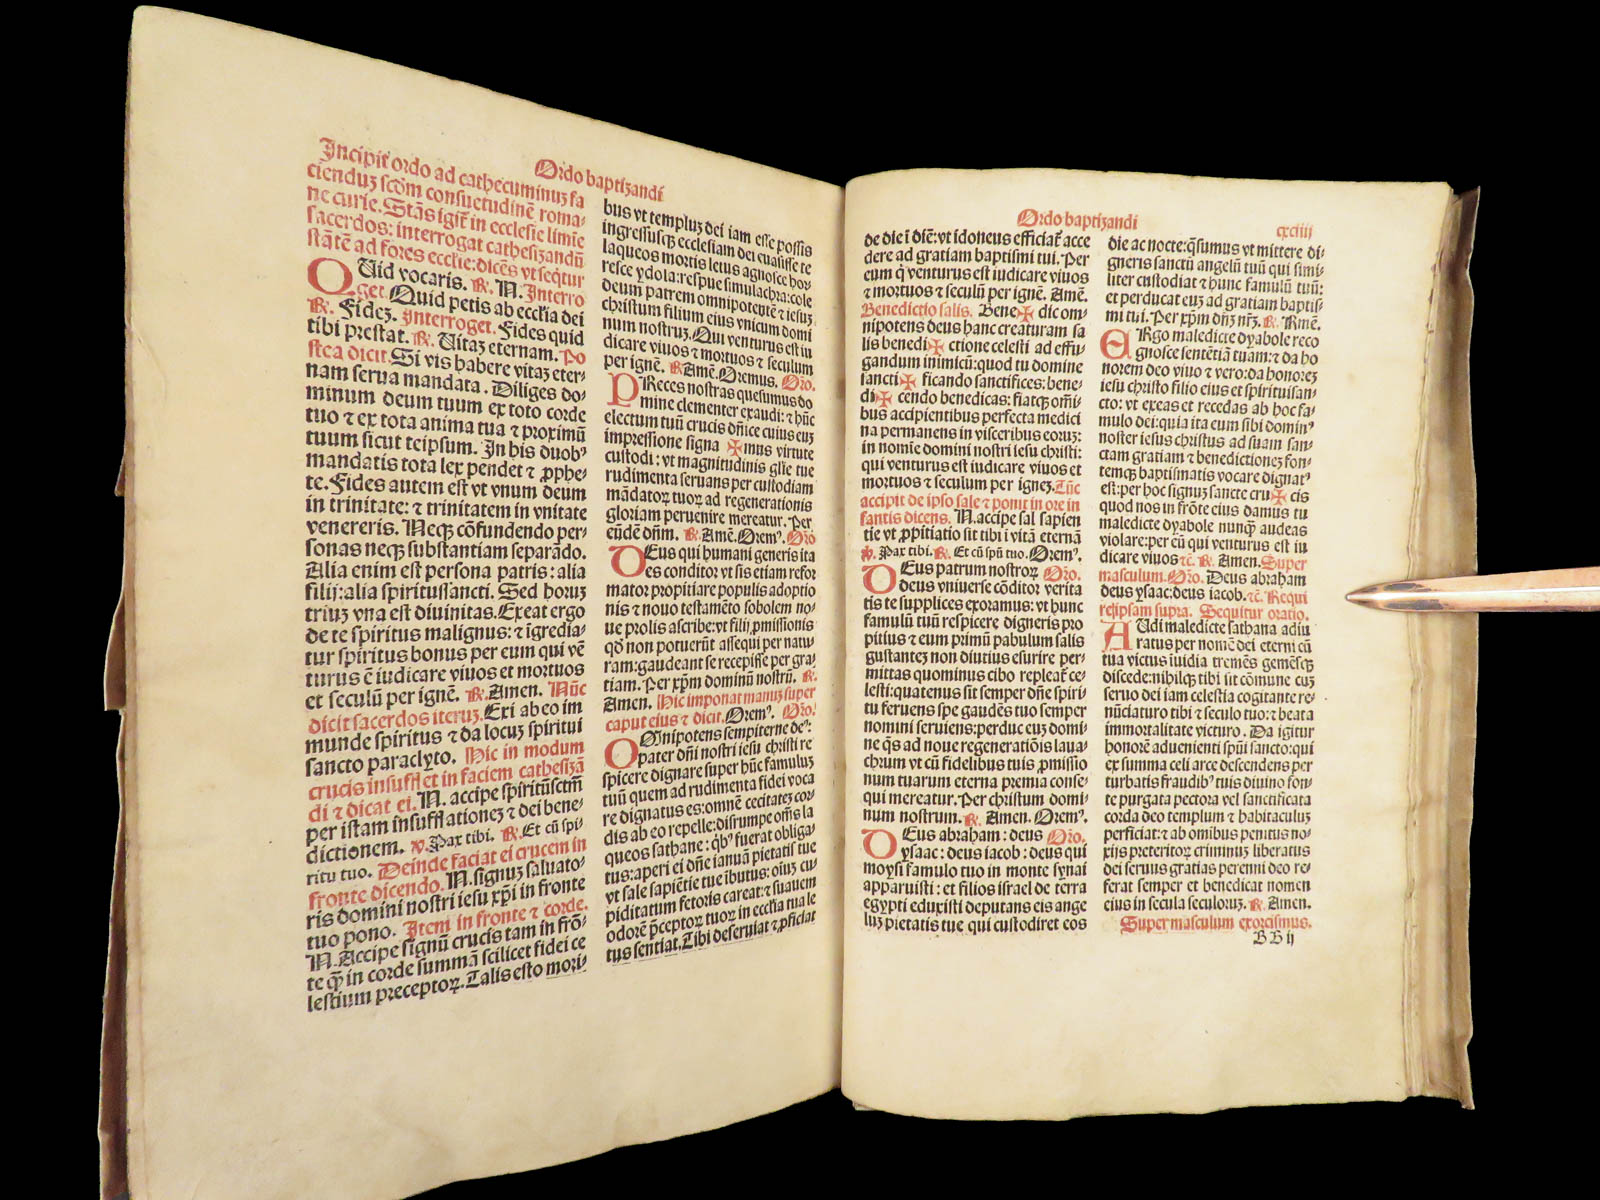 Ordo baptizandi
Incipit ordo ad cathecuminuz fa
cienduz scd̄m consuetudinē roma⸗
ne curie. Stās igit̄ in ecclesie limie
sacerdos: interrogat cathesizandū
stātē ad fores ecclīe: dicēs vt seq̄tur
QUid vocaris. ℟. N. Interro
get. Quid petis ab eccl̄ia dei
℟. Fidez. Interroget. Fides quid
tibi prestat. ℟. Vitaz eternam. Po
stea dicit. Si vis habere vitaz eter⸗
nam serua mandata. Diliges do⸗
minum deum tuum ex toto corde
tuo ⁊ ex tota anima tua ⁊ proximū
tuum sicut teipsum. In his duobꝰ
mandatis tota lex pendet ⁊ ꝓphe⸗
te. Fides autem est vt vnum deum
in trinitate: ⁊ trinitatem in vnitate
venereris. Neqꝫ cōfundendo per⸗
sonas neqꝫ substantiam separādo.
Alia enim est persona patris: alia
filij: alia spiritussancti. Sed horuz
triuz vna est diuinitas. Exeat ergo
de te spiritus malignus: ⁊ īgredia⸗
tur spiritus bonus per eum qui vē
turus ē iudicare viuos et mortuos
et seculū per ignē. ℟. Amen. Nūc
dicit sacerdos iteruz. Exi ab eo im
munde spiritus ⁊ da locuz spiritui
sancto paraclyto. Hic in modum
crucis insufflet in faciem cathesizā
di ⁊ dicat ei. N. accipe spiritūsctm̄
per istam insufflationez ⁊ dei bene⸗
dictionem. ℣. Pax tibi. ℟. Et cū spi⸗
ritu tuo. Deinde faciat ei crucem in
fronte dicendo. N. signuz saluato⸗
ris domini nostri iesu xp̄i in fronte
tuo pono. Item in fronte ⁊ corde.
N. Accipe signū crucis tam in frō⸗
te q̄ꝫ in corde summā scilicet fidei ce
lestium preceptoꝝ. Talis esto mori⸗
bus vt templuz dei iam esse possis
ingressusqꝫ ecclesiam dei euasisse te
laqueos mortis letus agnosce hor
resce ydola: respue simulachra: cole
deum patrem omnipotentē ⁊ iesuz
christum filium eius vnicum domi
num nostruz. Qui venturus est iu
dicare viuos ⁊ mortuos ⁊ seculum
per ignē. ℟ Amē. Oremus. Oro.
PReces nostras quesumus do
mine clementer exaudi: ⁊ hūc
electum tuū crucis dn̄ice cuius euz
impressione signa ✠mus virtute
custodi: vt magnitudinis gl̄ie tue
rudimenta seruans per custodiam
mādatoꝝ tuoꝝ ad regenerationis
gloriam peruenire mereatur. Per
eūdē dn̄m. ℟. Amē. Oremꝰ. Oro
DEus qui humani generis ita
es conditor vt sis etiam refor
mator propitiare populis adoptio
nis ⁊ nouo testamēto sobolem no⸗
ue prolis ascribe: vt filij ꝓmissionis
qđ non potuerūt assequi per natu⸗
ram: gaudeant se recepisse per gra⸗
tiam. Per xp̄m dominū nostrū. ℟.
Amen. Hic imponat manuz super
caput eius ⁊ dicit. Oremꝰ. Oro.
OMnipotens sempiterne deꝰ:
pater dn̄i nostri iesu christi re
spicere dignare super hūc famulū
tuū quem ad rudimenta fidei voca
re dignatus es: omnē cecitatez cor⸗
dis ab eo repelle: disrumpe om̄s la
queos sathane: qb̄ꝰ fuerat obliga⸗
tus: aperi ei dn̄e ianuā pietatis tue
vt sale sapiētie tue ībutus: oīuz cu⸗
piditatum fetoris careat: ⁊ suauem
odorē p̄ceptoꝝ tuoꝝ in eccl̄ia tua le
tus sentiat. Tibi deseruiat ⁊ ꝓficiat
Ordo baptizandi
cxciiij
de die ī diē: vt idoneus efficiat̄ acce
dere ad gratiam baptismi tui. Per
eum q̄ venturus est iudicare viuos
⁊ mortuos ⁊ seculū per ignē. Amē.
Benedictio salis. Bene✠ dic om⸗
nipotens deus hanc creaturam sa
lis benedi✠ctione celesti ad effu⸗
gandum inimicū: quod tu domine
sancti✠ ficando sanctifices: bene⸗
di✠ cendo benedicas: fiatqꝫ om̄i⸗
bus accipientibus perfecta medici
na permanens in visceribus eoruz:
in nomīe domini nostri iesu christi:
qui venturus est iudicare viuos et
mortuos ⁊ seculum per ignez. Tūc
accipit de ipso sale ⁊ ponit in ore in
fantis dicens. N. accipe sal sapien
tie vt ꝓpitiatio sit tibi ī vitā eternā
℣. Pax tibi. ℟. Et cū spū tuo. Oremꝰ.
DEus patrum nostroꝝ Oro.
deus vniuerse cōditor verita
tis te supplices exoramus: vt hunc
famulū tuū respicere digneris pro
pitius ⁊ eum primū pabulum salis
gustantez non diutius esurire per⸗
mittas quominus cibo repleat̄ ce⸗
lesti: quatenus sit semper dn̄e spiri⸗
tu feruens spe gaudēs tuo semper
nomini seruiens: perduc euz domi⸗
ne q̄s ad noue regeneratiōis laua⸗
chrum vt cū fidelibus tuis ꝓmissio
num tuarum eterna premia conse⸗
qui mereatur. Per christum domi⸗
num nostrum. ℟. Amen. Oremꝰ.
DEus abraham: deus Oro.
ysaac: deus iacob: deus qui
moysi famulo tuo in monte synai
apparuisti: et filios israel de terra
egypti eduxisti deputans eis ange
luz pietatis tue qui custodiret eos
die ac nocte: q̄sumus vt mittere di⸗
gneris sanctū angelū tuū qui simi⸗
liter custodiat ⁊ hunc famulū tuū:
et perducat euz ad gratiam baptis⸗
mi tui. Per xp̄m dn̄z nr̄z. ℟. Amē.
ERgo maledicte dyabole reco
gnosce sentētiā tuam: ⁊ da ho
norem deo viuo ⁊ vero: da honorez
iesu christo filio eius et spirituisan⸗
cto: vt exeas et recedas ab hoc fa⸗
mulo dei: quia ita eum sibi dominꝰ
noster iesus christus ad suam san⸗
ctam gratiam ⁊ benedictionez fon⸗
temqꝫ baptismatis vocare dignatꝰ
est: per hoc signuz sancte cru✠ cis
quod nos in frōte eius damus tu
maledicte dyabole nunq̄ꝫ audeas
violare: per eū qui venturus est iu
dicare viuos ⁊c̄. ℟. Amen. Super
masculum. Oro. Deus abraham
deus ysaac: deus iacob. ⁊c̄. Requi
re ipsam supra. Sequitur oratio.
AUdi maledicte sathana adiu
ratus per nomē dei eterni cū
tua victus īuidia tremēs gemēsqꝫ
discede: nihilqꝫ tibi sit cōmune cuz
seruo dei iam celestia cogitante re⸗
nūciaturo tibi ⁊ seculo tuo: ⁊ beata
immortalitate victuro. Da igitur
honorē aduenienti spūi sancto: qui
ex summa celi arce descendens per
turbatis fraudibꝰ tuis diuino fon⸗
te purgata pectora vel sanctificata
corda deo templum ⁊ habitaculuz
perficiat: ⁊ ab omnibus penitus no⸗
xijs preteritoꝝ criminuz liberatus
dei seruus gratias perenni deo re⸗
ferat semper et benedicat nomen
eius in secula seculoruz. ℟. Amen.
Super masculum exorcismus.
BB ij